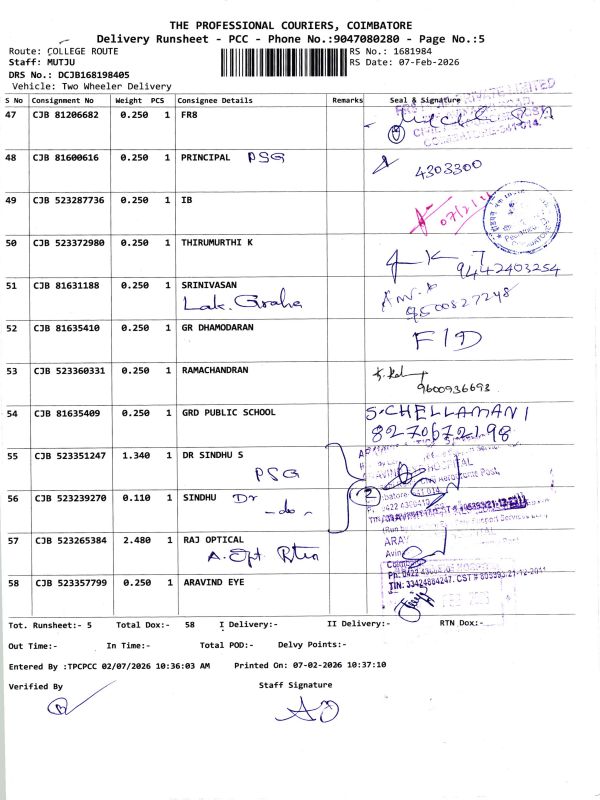 THE PROFESSIONAL COURIERS, COIMBATORE
Delivery Runsheet - PCC - Phone No.:9047080280 - Page No.:5
Route: COLLEGE ROUTE RS No.: 1681984
Staff: MUTJU RS Date: 07-Feb-2026
DRS No.: DCJB168198405
Vehicle: Two Wheeler Delivery
S No Consignment No Weight PCS Consignee Details Remarks Seal & Signature
47 CJB 81206682 0.250 1 FR8
48 CJB 81600616 0.250 1 PRINCIPAL PSG 4303300
49 CJB 523287736 0.250 1 IB
50 CJB 523372980 0.250 1 THIRUMURTHI K
9442403254
51 CJB 81631188 0.250 1 SRINIVASAN
Lak. Graha 9500827248
52 CJB 81635410 0.250 1 GR DHAMODARAN F/D
53 CJB 523360331 0.250 1 RAMACHANDRAN
9600936693
54 CJB 81635409 0.250 1 GRD PUBLIC SCHOOL S.CHELLAMANI
8270672198
55 CJB 523351247 1.340 1 DR SINDHU S
PSG
56 CJB 523239270 0.110 1 SINDHU Dr 2
- do -
57 CJB 523265384 2.480 1 RAJ OPTICAL
58 CJB 523357799 0.250 1 ARAVIND EYE
Tot. Runsheet:- 5 Total Dox:- 58 I Delivery:- II Delivery:- RTN Dox:-
Out Time:- In Time:- Total POD:- Delvy Points:-
Entered By :TPCPCC 02/07/2026 10:36:03 AM Printed On: 07-02-2026 10:37:10
Verified By Staff Signature